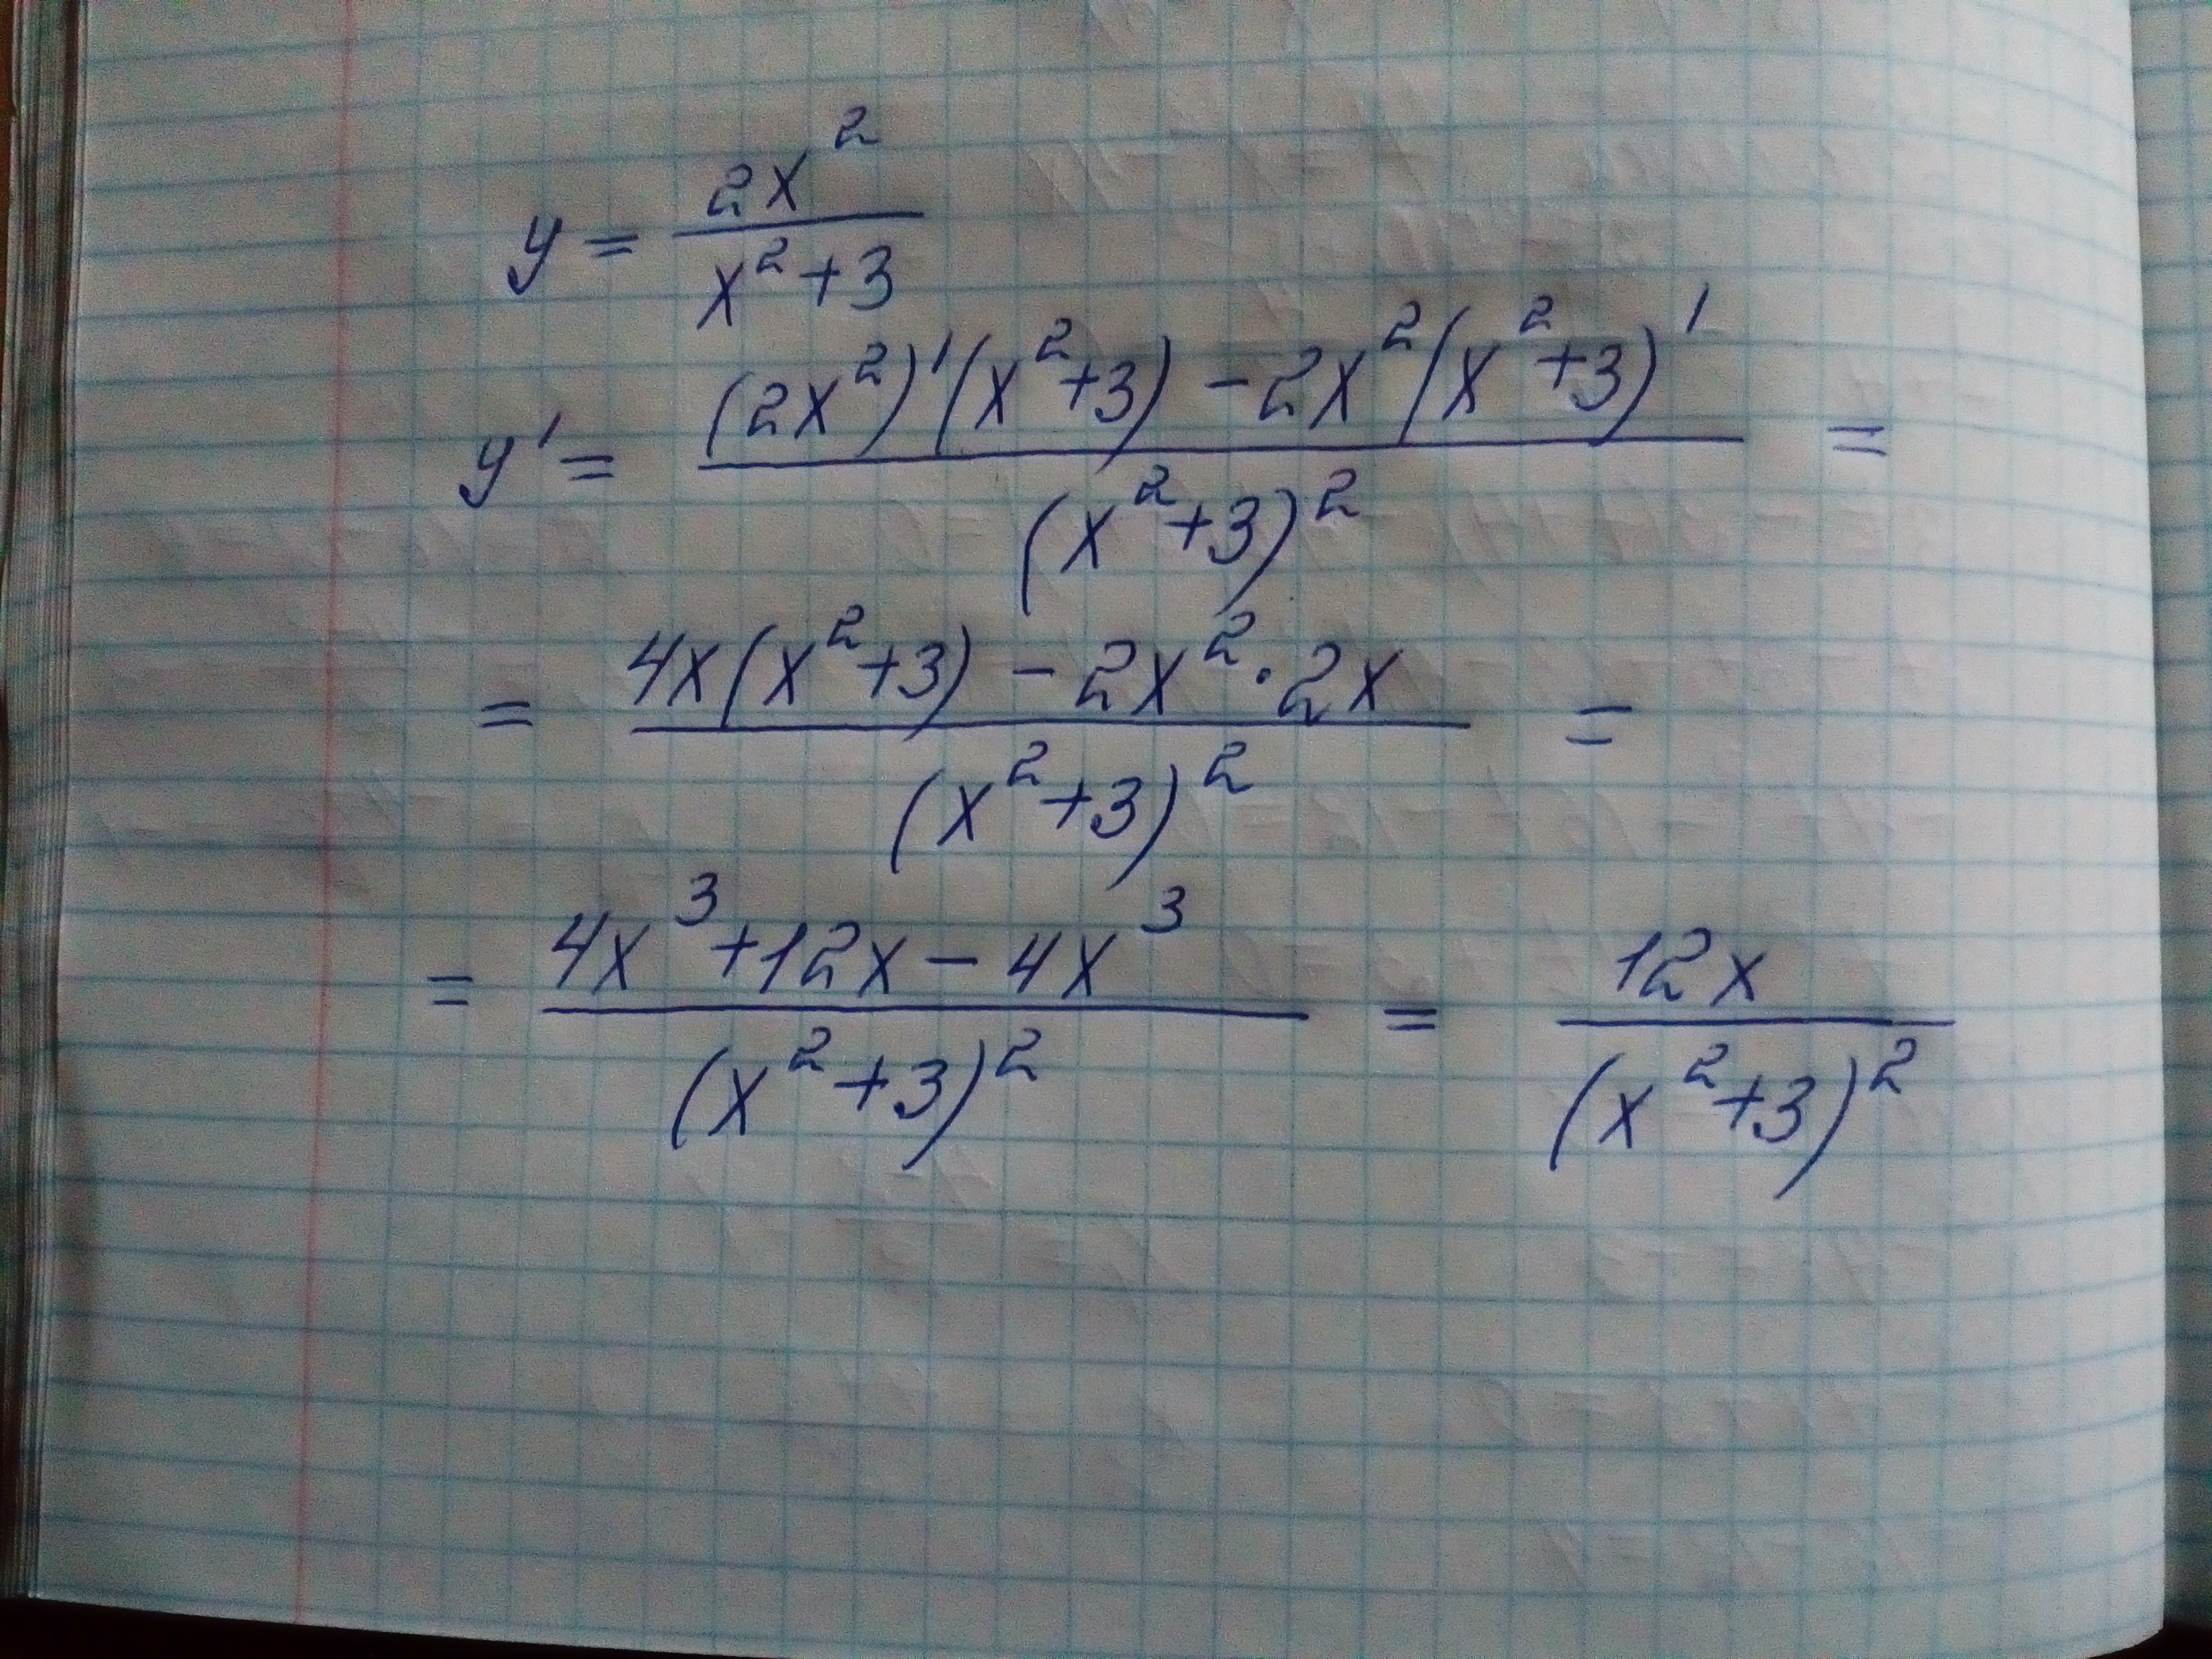 y = 2x² / x²+3
y' = (2x²)'(x²+3) - 2x²(x²+3)' / (x²+3)² =
= 4x(x²+3) - 2x²·2x / (x²+3)² =
= 4x³+12x-4x³ / (x²+3)² = 12x / (x²+3)²